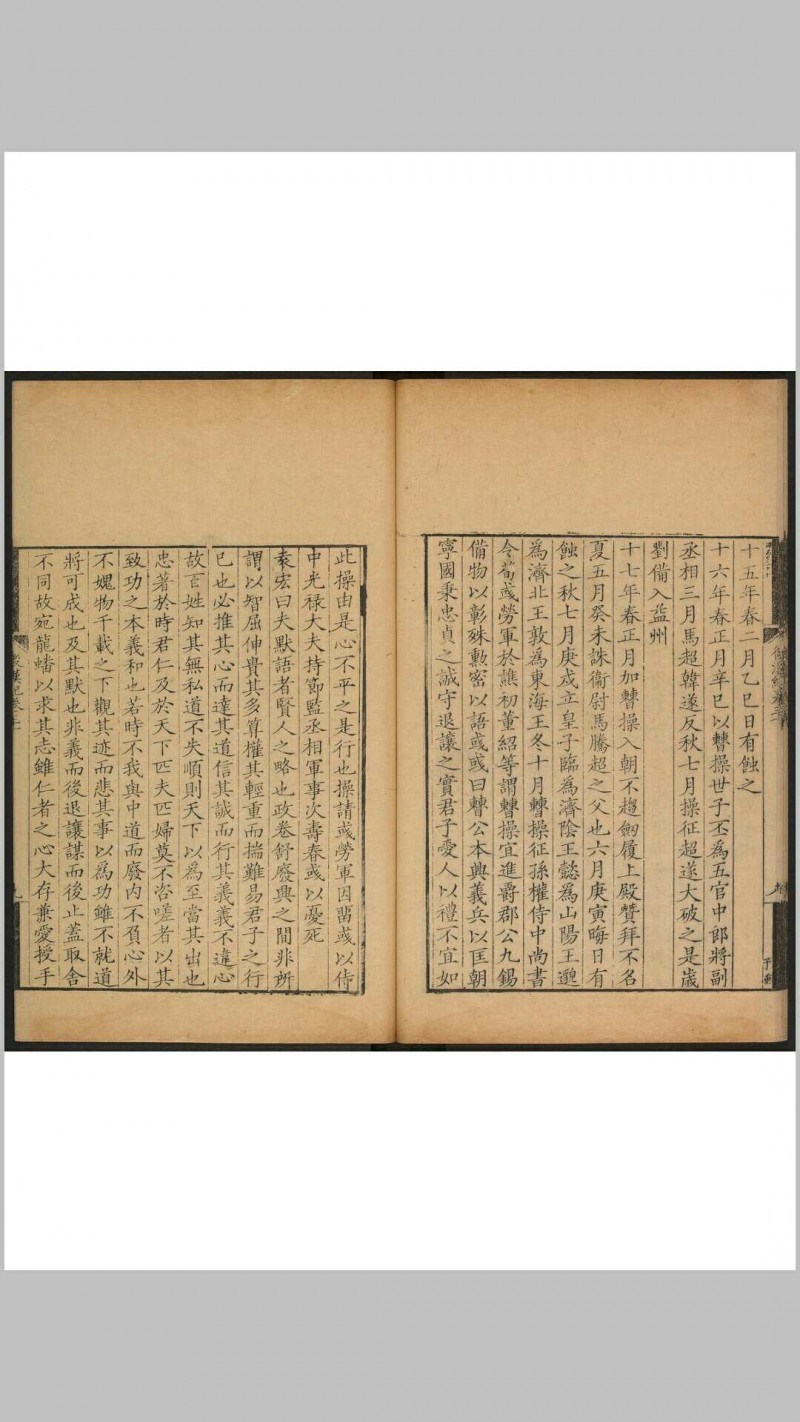 十五年春二月乙巳日有蝕之
十六年春正月辛巳以曹操世子丕為五官中郎將副
丞相三月馬超韓遂反秋七月操征超遂大破之是歲
劉備入益州
十七年春正月加曹操入朝不趨劒履上殿贊拜不名
夏五月癸未誅衞尉馬騰超之父也六月庚寅晦日有
蝕之秋七月庚戌立皇子臨為濟陰王懿為山陽王邈
為濟北王敦為東海王冬十月曹操征孫權侍中尚書
令荀彧勞軍於譙初董紹等謂曹操宜進爵郡公九錫
備物以彰殊勳密以語彧彧曰曹公本興義兵以匡朝
寧國秉忠貞之誠守退讓之實君子愛人以禮不宜如
此操由是心不平之是行也操請彧勞軍因留彧以侍
中光禄大夫持節監丞相軍事次壽春彧以憂死
袁宏曰夫默語者賢人之略也政卷舒廢興之間非所
謂以智屈伸貴其多算權其輕重而揣難易君子之行
已也必推其心而達其道信其誠而行其義義不違心
故言姓知其無私道不失順則天下以為至當其出也
忠著於時君仁及於天下匹夫匹婦莫不咨嗟者以其
致功之本義和也若時不我與中道而廢内不負心外
不媿物千載之下觀其迹而悲其事以為功雖不就道
將可成也及其默也非義而後退讓謀而後止蓋取舍
不同故宛龍蟠以求其志雖仁者之心大存兼愛授手